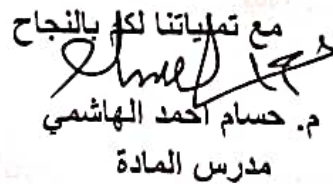 مع تمنياتنا لكم بالنجاح
م. حسام احمد الهاشمي
مدرس المادة